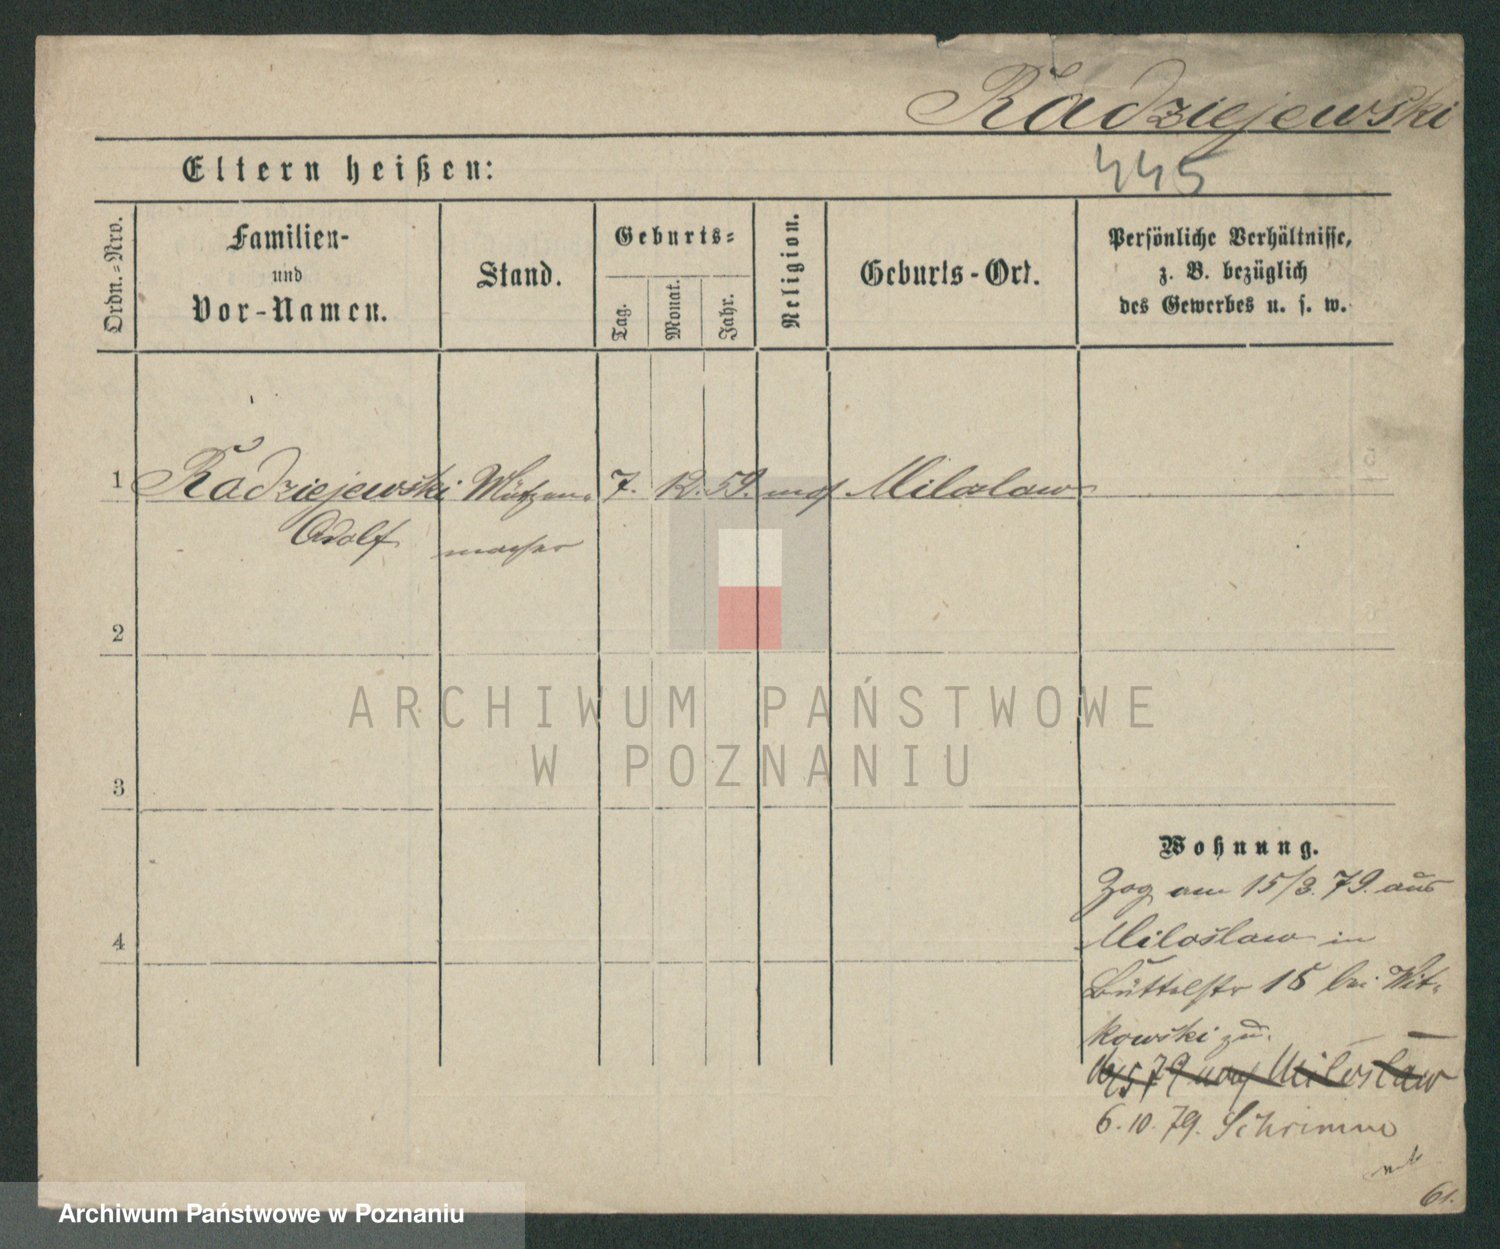 Radziejewski
Eltern heißen:
445
Ordn.=Nro.
Familien-
und
Vor-Namen.
Stand.
Geburts=
Tag.
Monat.
Jahr.
Religion.
Geburts-Ort.
Persönliche Verhältnisse,
z. B. bezüglich
des Gewerbes u. s. w.
1 Radziejewski Mützen= 7. 12. 59. mos Miloslaw
Adolf macher
2
ARCHIWUM PAŃSTWOWE
W POZNANIU
3
Wohnung.
Zog am 15/3. 79. aus
Miloslaw in
4
Büttelstr 18 bei Wit=
kowski zu.
79 nach Miloslaw
6. 10. 79. Schrimm
61.
Archiwum Państwowe w Poznaniu